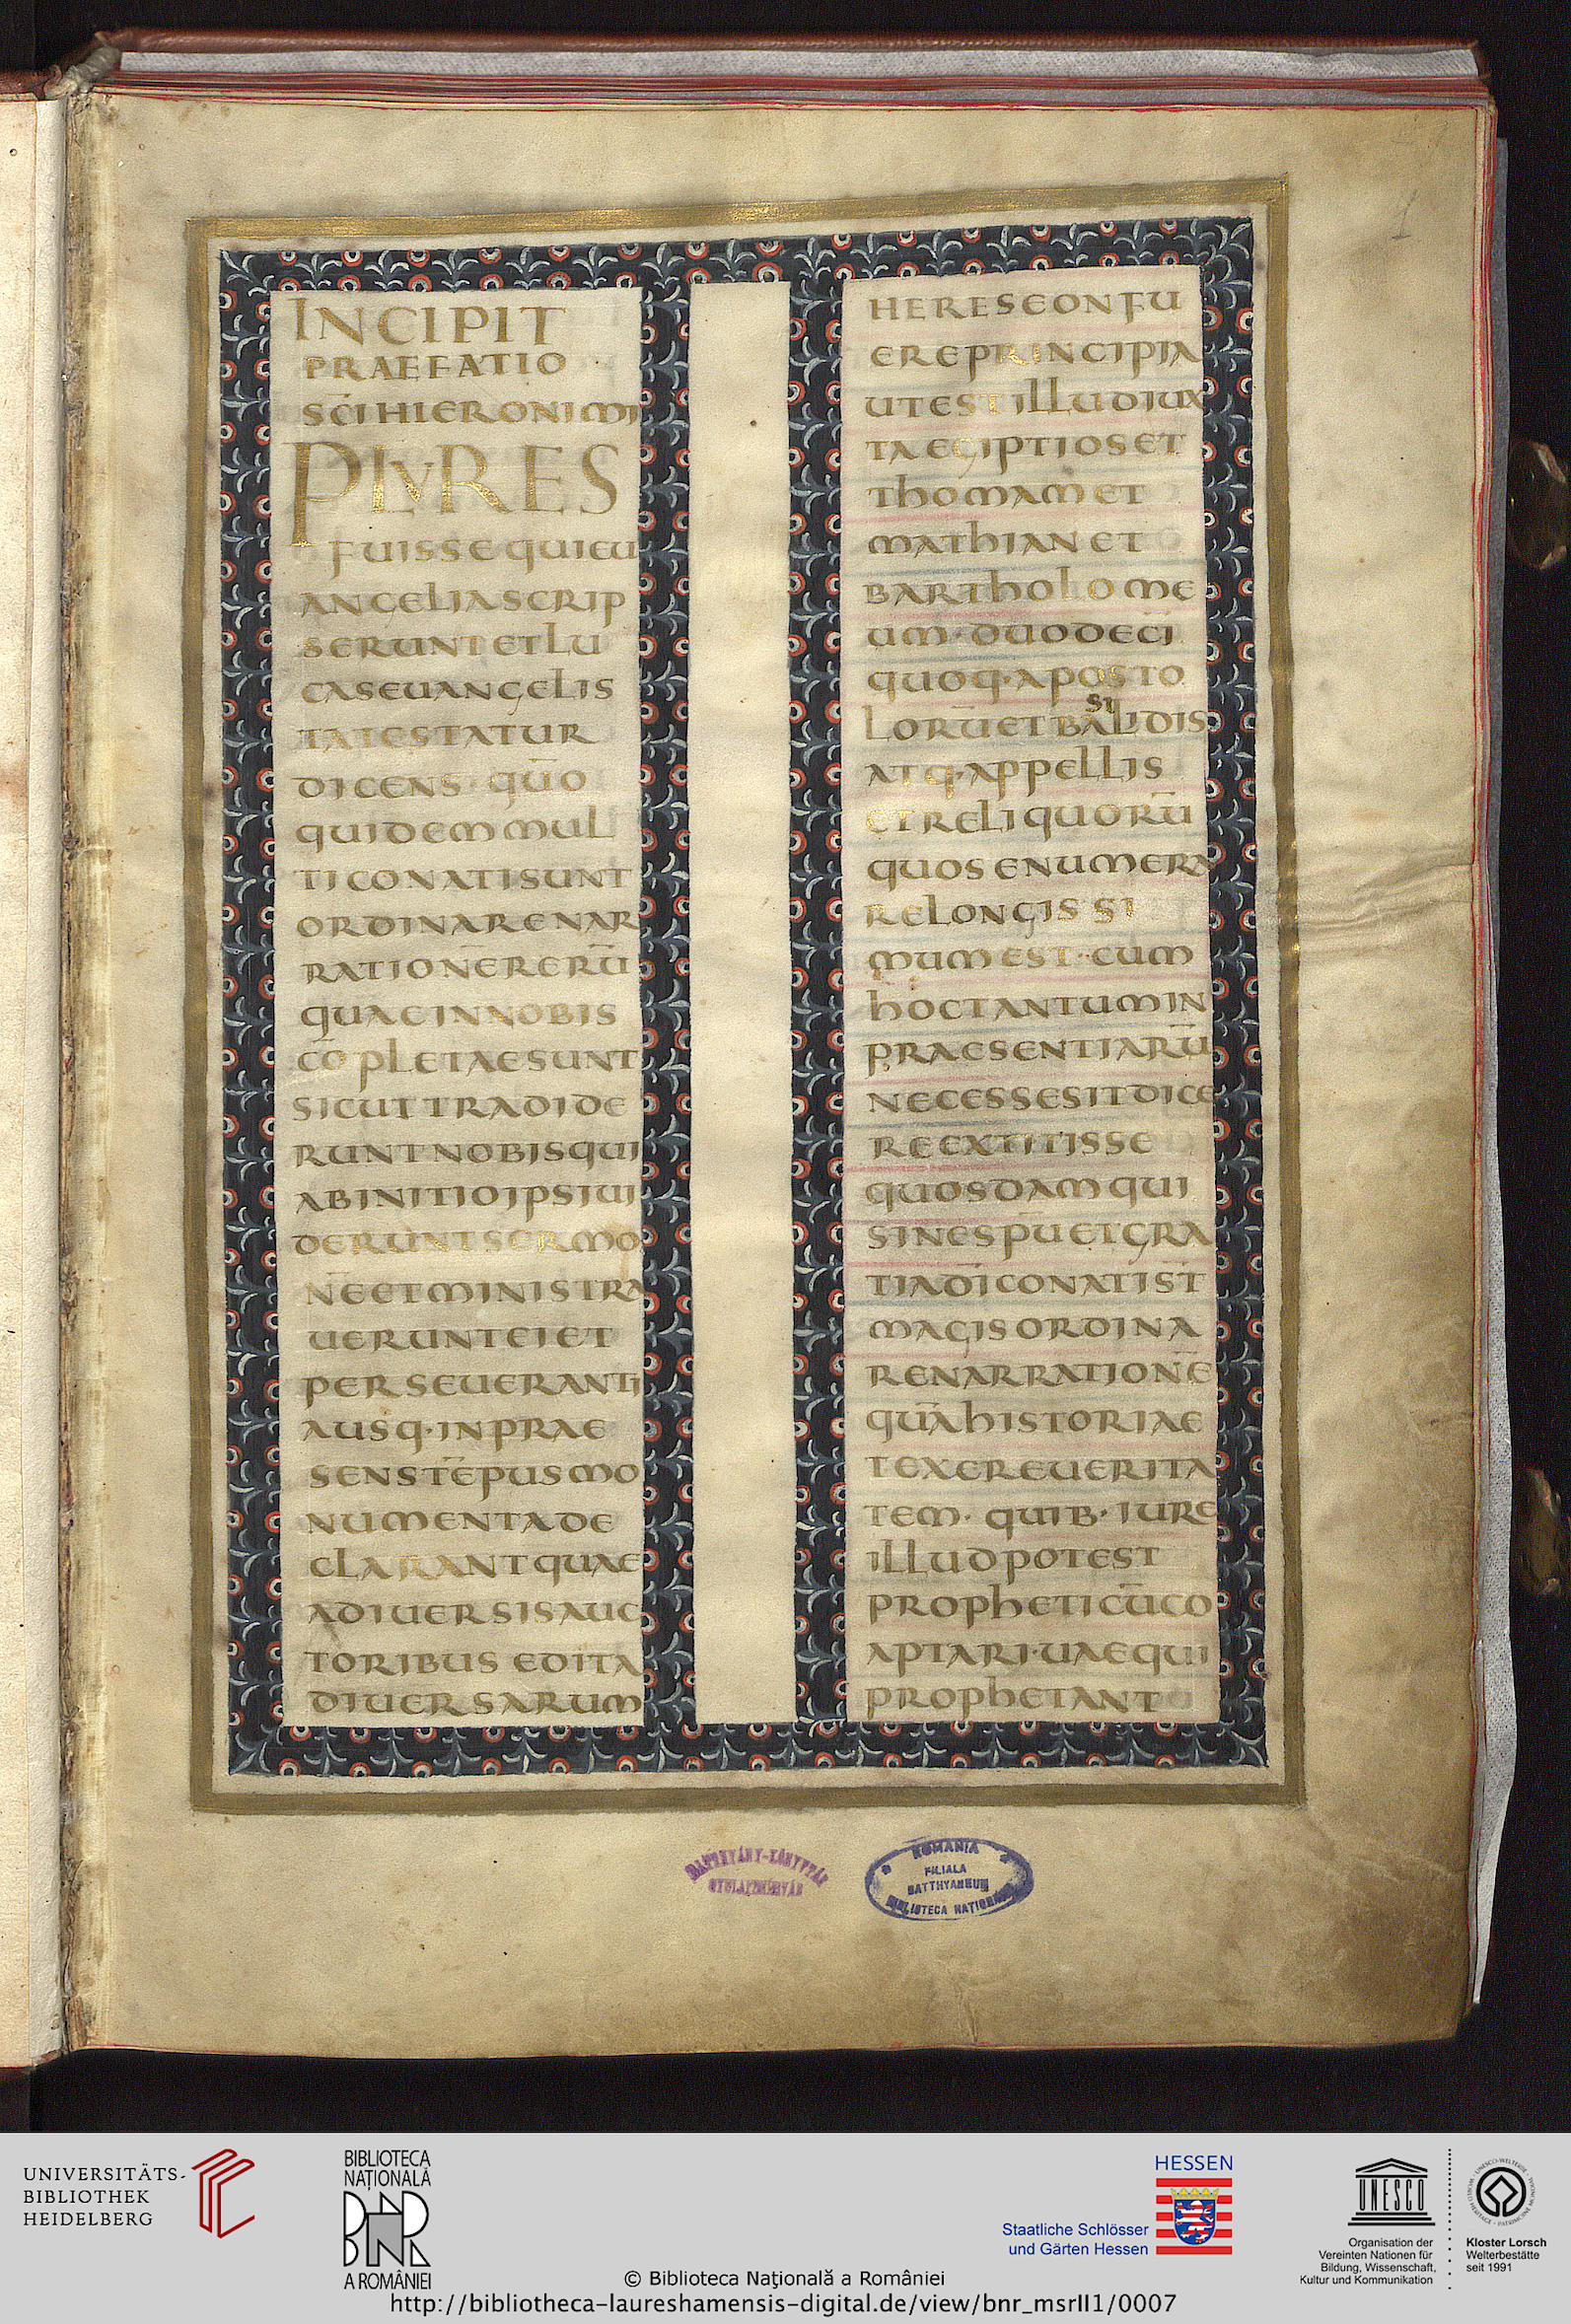 INCIPIT
PRAEFATIO
SCI HIERONIMI
PLURES
FUISSE QUI EU
ANGELIA SCRIP
SERUNT ET LU
CAS EUANGELIS
TA TESTATUR
DICENS · QUO
QUIDEM MUL
TI CONATI SUNT
ORDINARE NAR
RATIONE RERU
QUAE IN NOBIS
COPLETAE SUNT
SICUT TRADIDE
RUNT NOBIS QUI
AB INITIO IPSI UI
DERUNT SERMO
NE ET MINISTRA
UERUNT EI ET
PERSEUERANTI
A USQ· IN PRAE
SENS TEPUS MO
NUMENTA DE
CLARANT QUAE
A DIUERSIS AUC
TORIBUS EDITA
DIUERSARUM
HERESEON FU
ERE PRINCIPIA
UT EST ILLUD IUX
TA EGIPTIOS ET
THOMAM ET
MATHIAN ET
BARTHOLOME
UM · DUODECI
QUOQ· APOSTO
LORU ET BASILIDIS
ATQ· APPELLIS
ET RELIQUORU
QUOS ENUMERA
RE LONGISSI
MUM EST · CUM
HOC TANTUM IN
PRAESENTIARU
NECESSE SIT DICE
RE EXTITISSE
QUOSDAM QUI
SINE SPU ET GRA
TIA DI CONATI ST
MAGIS ORDINA
RE NARRATIONE
QUA HISTORIAE
TEXERE UERITA
TEM · QUIB· IURE
ILLUD POTEST
PROPHETICU CO
APTARI · UAE QUI
PROPHETANT
BATTHYÁNY-KÖNYVTÁR
GYULAFEHÉRVÁR
ROMANIA
FILIALA
BATTHYANEUM
BIBLIOTECA NAȚIONALĂ
UNIVERSITÄTS-
BIBLIOTHEK
HEIDELBERG
BIBLIOTECA
NAȚIONALĂ
BNR
A ROMÂNIEI
© Biblioteca Naţională a României
http://bibliotheca-laureshamensis-digital.de/view/bnr_msrII1/0007
HESSEN
Staatliche Schlösser
und Gärten Hessen
UNESCO
Organisation der
Vereinten Nationen für
Bildung, Wissenschaft,
Kultur und Kommunikation
Kloster Lorsch
Welterbestätte
seit 1991